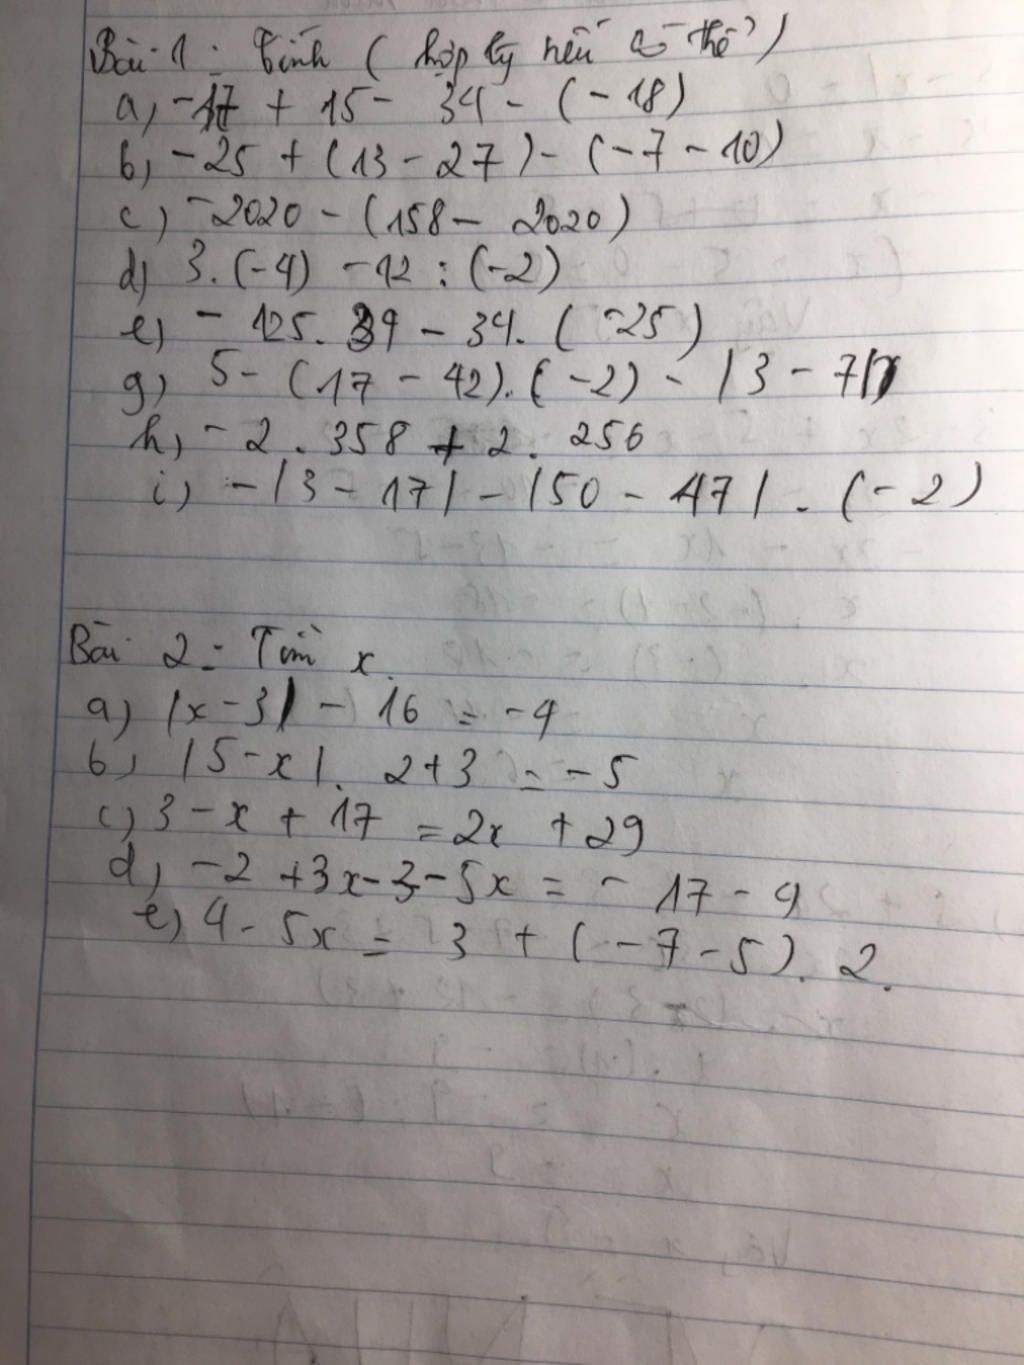 Bài 1: Tính (hợp lý nếu có thể)
a, -17 + 15 - 34 - (-18)
b, -25 + (13 - 27) - (-7 - 10)
c) -2020 - (158 - 2020)
d) 3. (-4) - 12 : (-2)
e) - 125. 39 - 34. (-25)
g) 5 - (17 - 42). (-2) - |3 - 7|
h, - 2 . 358 + 2. 256
i) - |3 - 17| - |50 - 47| . (-2)
Bài 2: Tìm x
a) |x - 3| - 16 = -4
b, |5 - x|. 2 + 3 = -5
c) 3 - x + 17 = 2x + 29
d, -2 + 3x - 3 - 5x = - 17 - 9
e) 4 - 5x = 3 + (-7 - 5). 2.